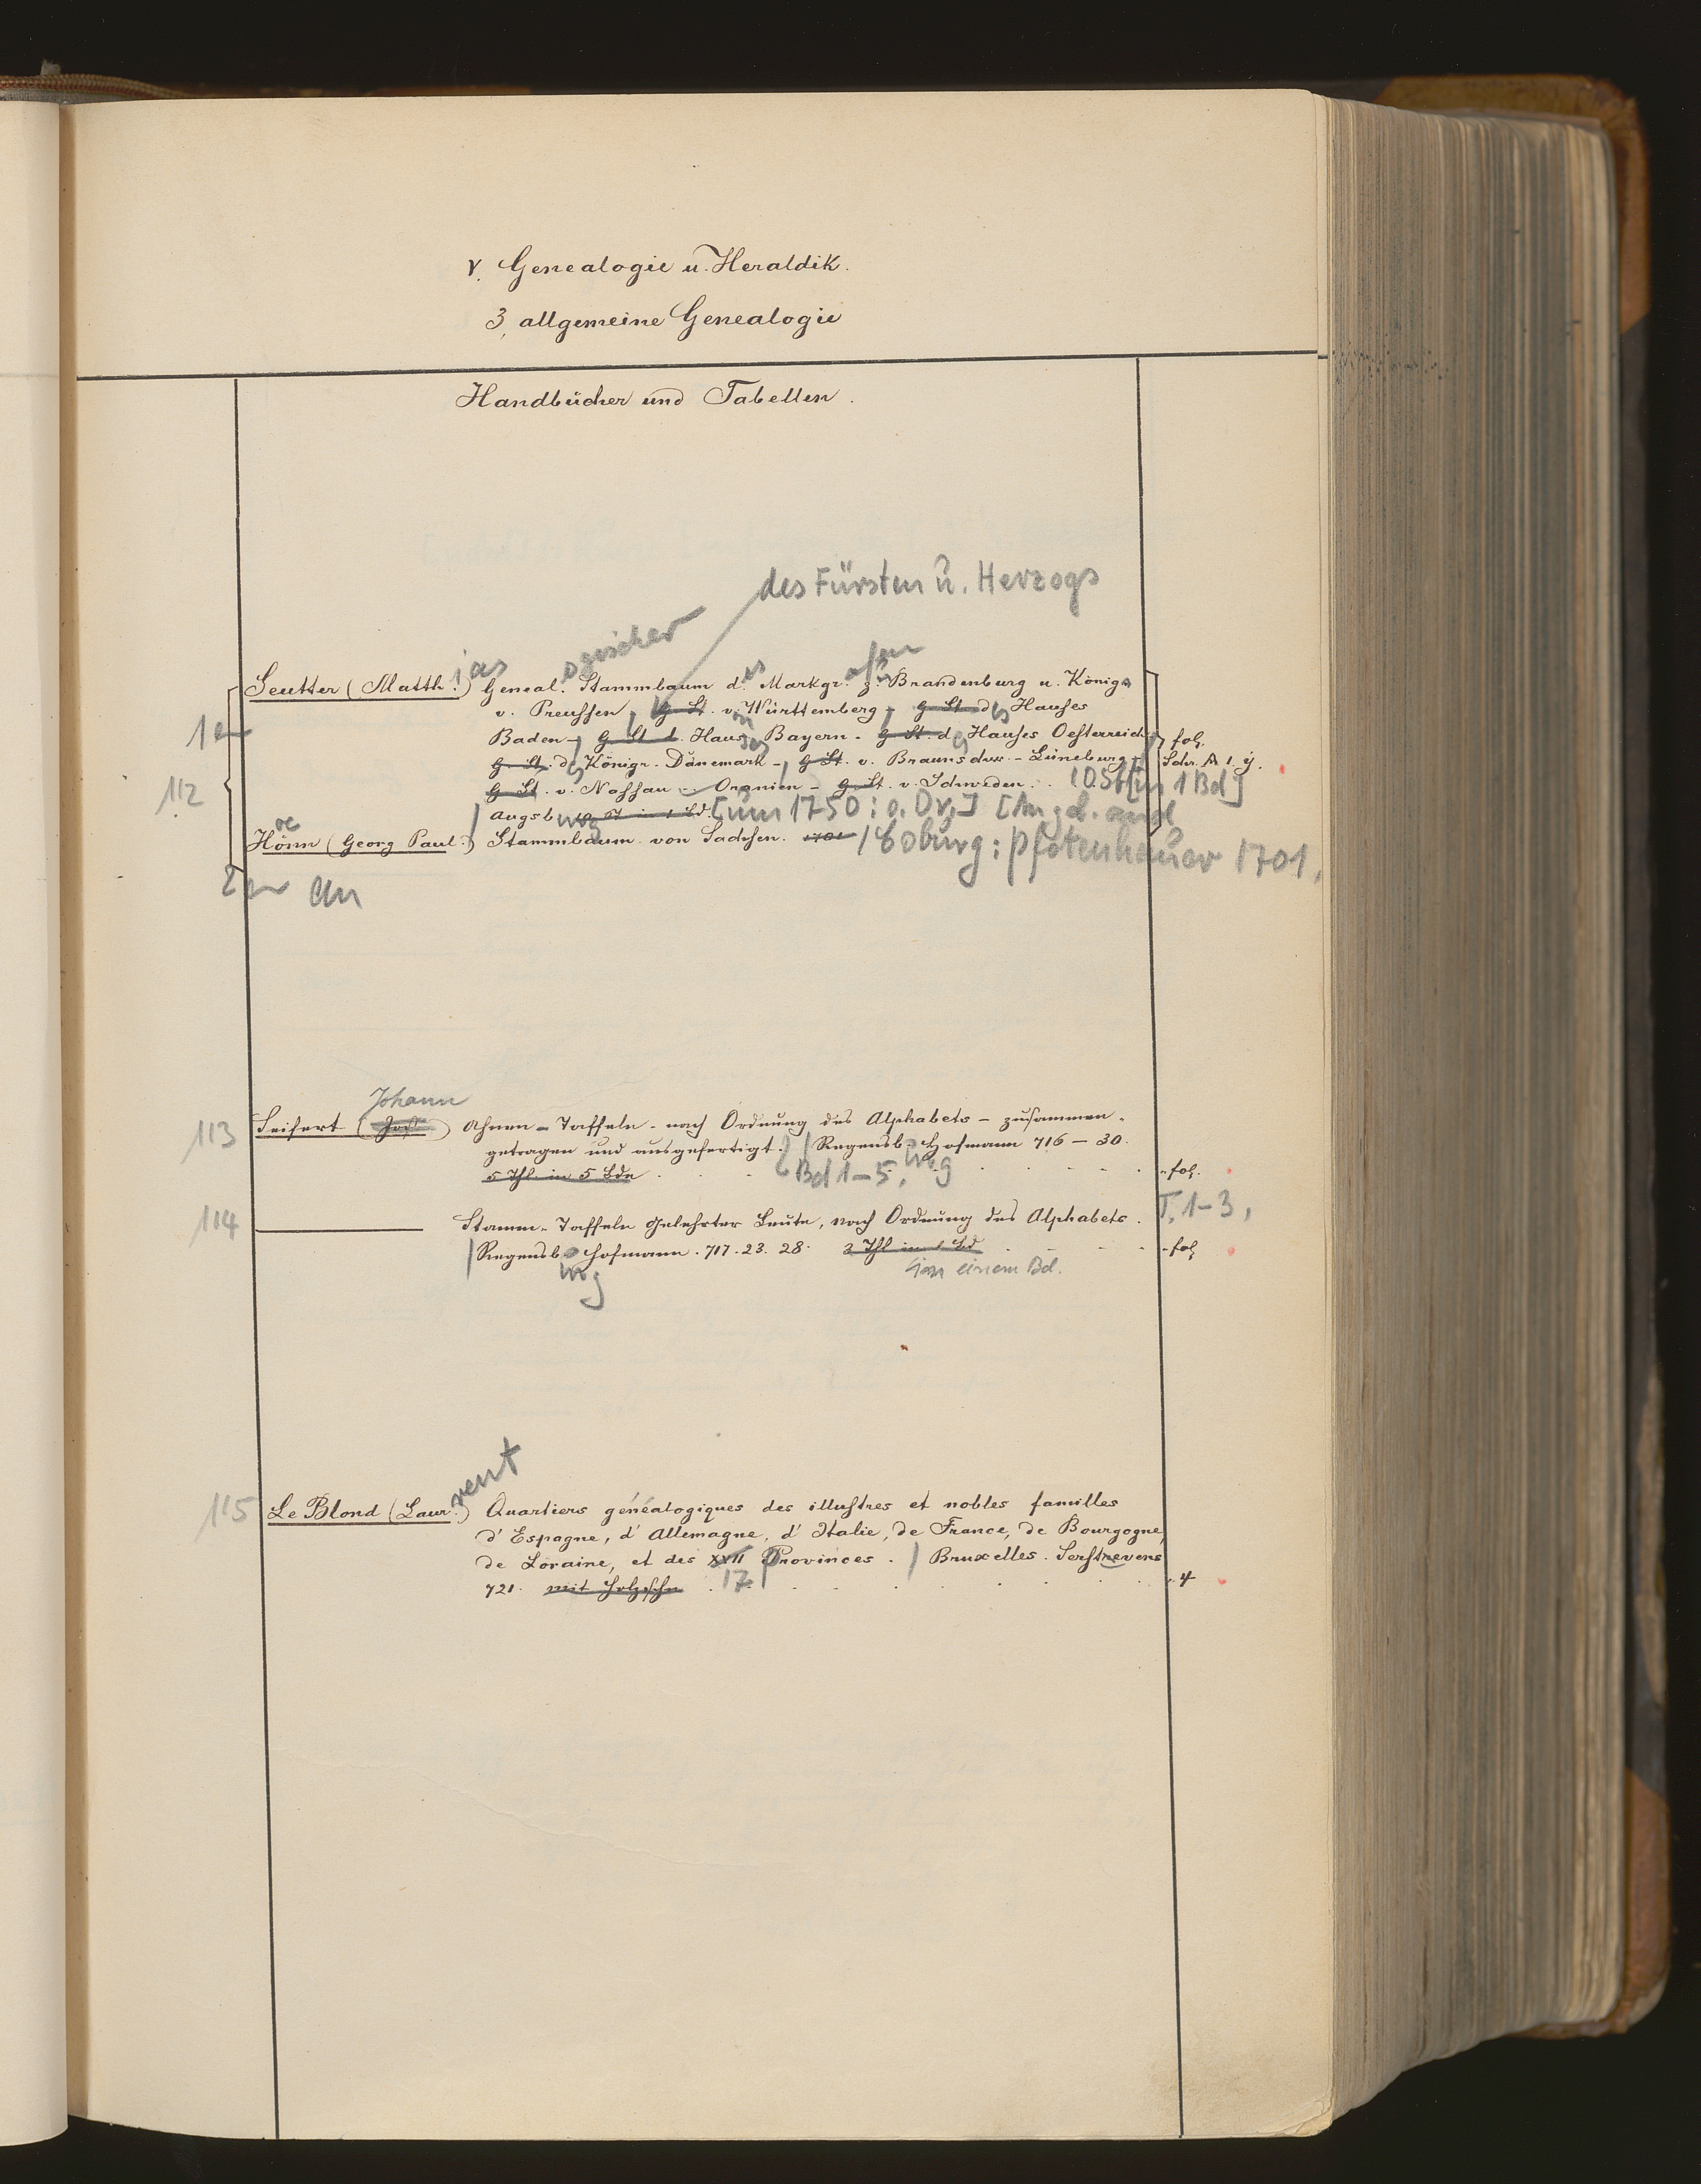 V. Genealogie u. Heraldik.
3, allgemeine Genealogie
Handbücher und Tabellen.
des Fürsten u. Herzogs
ias ogischer es afen
Seutter (Matth.) Geneal. Stammbaum d. Markgr. z. Brandenburg u. Königs
v. Preussen, G St. v. Württemberg, G St. d Hauses
1
Baden - G St d. Haus Bayern - G St. d Hauses Oesterreich fol.
G. St. d Königr. Dänemark - G St. v. Braunschw. - Lüneburg Schr. A 1. y.
112
G St. v. Nassau - Oranien - G St. v. Schweden. 10 Stk in 1 Bd]
Augsb urg [um 1750: o. Dr.] [Angeb.
oe
Hönn (Georg Paul.) Stammbaum von Sachsen. 1701 / Coburg: Pfotenhauer 1701.
2 an
Johann
113 Seifert (Jos) Ahnen - Taffeln - nach Ordnung des Alphabets - zusammen-
getragen und ausgefertigt. / Regensb. Hofmann 716 - 30.
urg
5 Thl. in 5 Bde Bd 1-5, - fol.
114 Stamm - Taffeln Gelehrter Leute, nach Ordnung des Alphabets. T. 1-3,
/ Regensb Hofmann. 717. 23. 28. 3 Thl in 1 Bd - fol
urg in einem Bd.
rent
115 Le Blond (Laur.) Quartiers généalogiques des illustres et nobles familles
d'Espagne, d'Allemagne, d'Italie, de France, de Bourgogne,
de Loraine, et des XVII Provinces. / Bruxelles. Serstevens
721. mit Holzschn 17 4